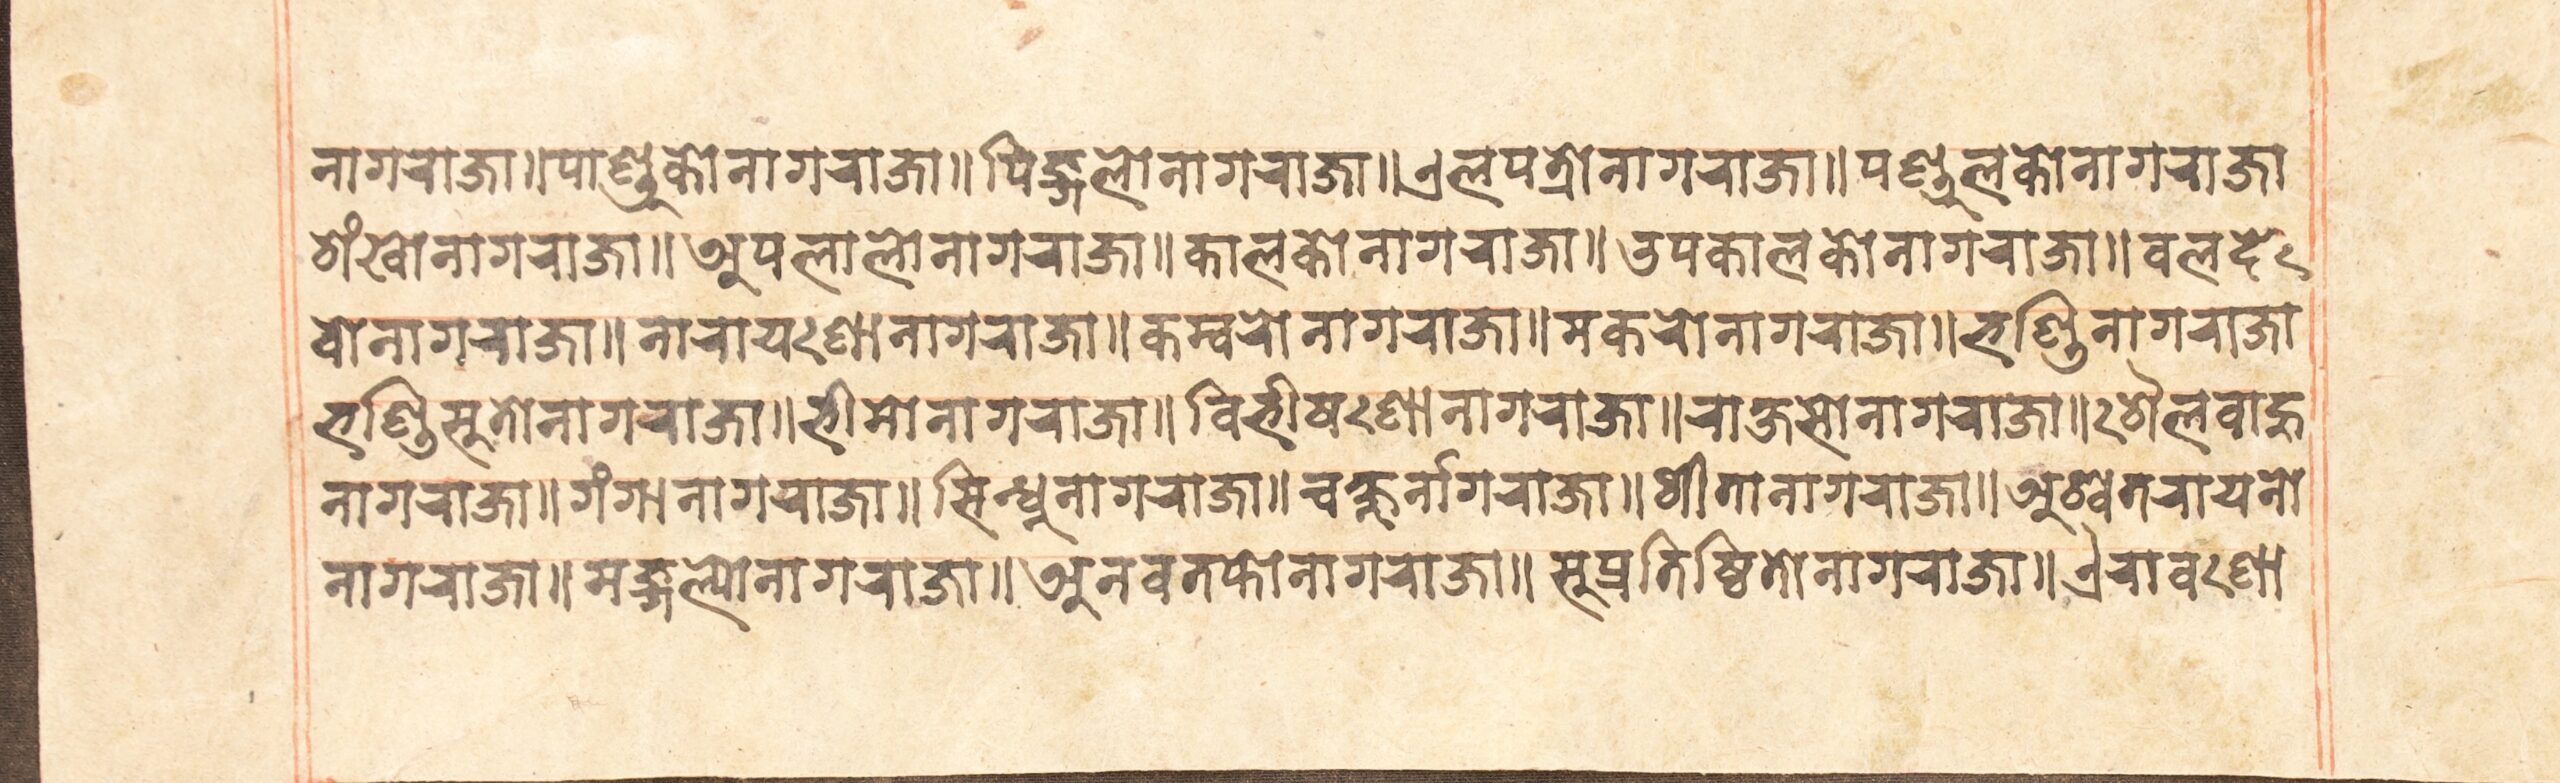 नागराजा॥पाण्डुको नागराजा॥ पिङ्गलो नागराजा॥ एलपत्रो नागराजा॥ पण्डुलको नागराजा
शंखो नागराजा॥ अपलालो नागराजा॥ कालको नागराजा॥ उपकालको नागराजा॥ वलदे
वो नागराजा॥ नारायणो नागराजा॥ कम्वरो नागराजा॥ मकरो नागराजा॥ भण्डि नागराजा
भण्डिसुतो नागराजा॥ भीमो नागराजा॥ विभीषणो नागराजा॥ राक्षसो नागराजा॥ शैलवाहु
नागराजा॥ गंगा नागराजा॥ सिन्धु नागराजा॥ चक्षुर्नागराजा॥ शीता नागराजा॥ अश्वेतरायनो
नागराजा॥ मङ्गल्यो नागराजा॥ अनवतप्तो नागराजा॥ सुप्रतिष्ठितो नागराजा॥ ऐरावणो